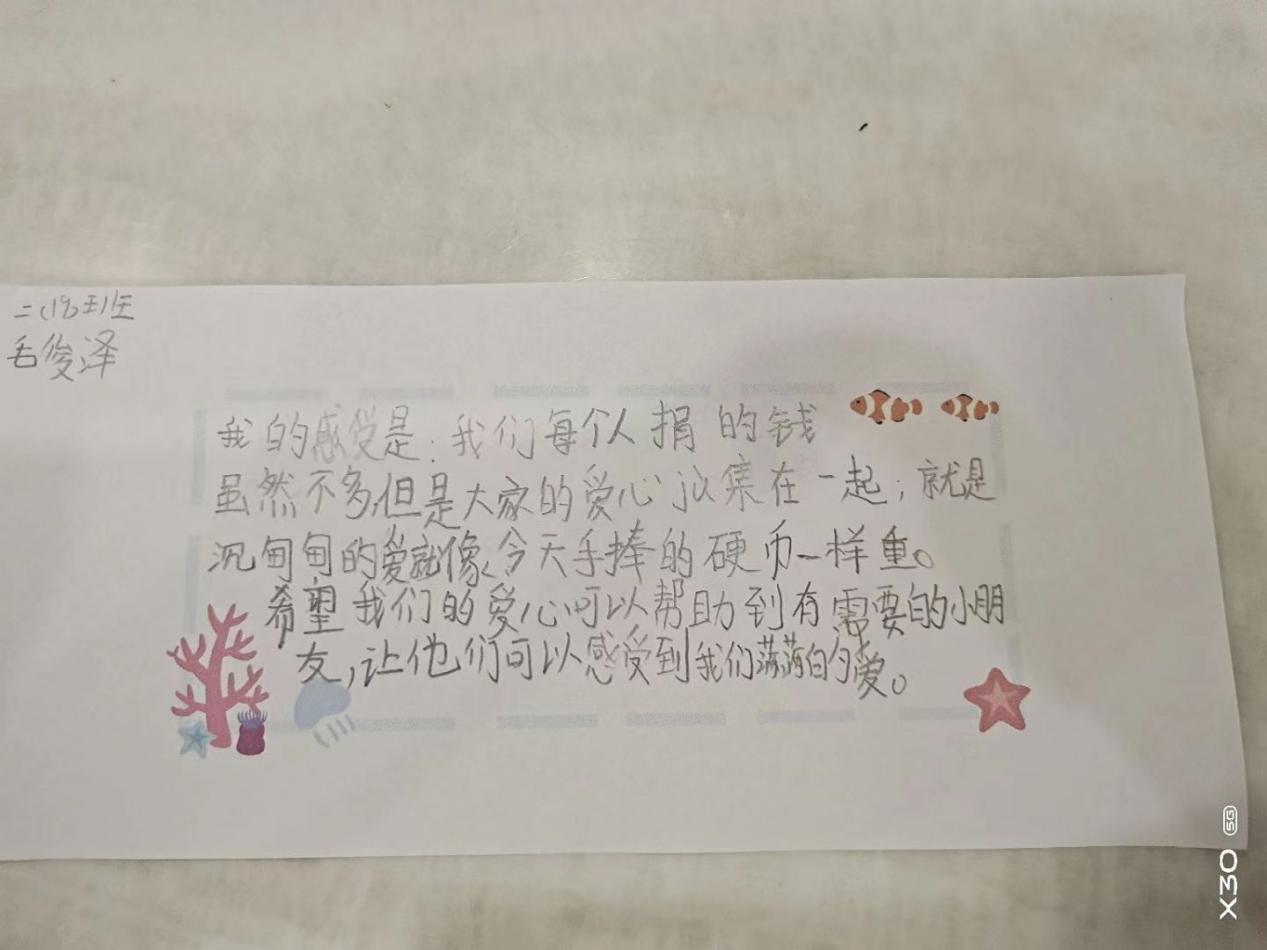 二(18)班
毛俊泽
我的感受是:我们每个人捐的钱
虽然不多,但是大家的爱心汇集在一起,就是
沉甸甸的爱就像今天手捧的硬币一样重。
希望我们的爱心可以帮助到有需要的小朋
友,让他们可以感受到我们满满的爱。
X30 5G